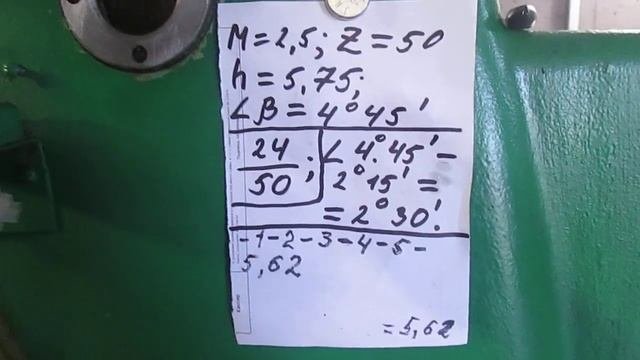 M=2,5; Z=50
h=5,75;
∠β=4°45'
24/50; ∠4°45'-
2°15'=
=2°30'.
-1-2-3-4-5-
5,62
=5,62